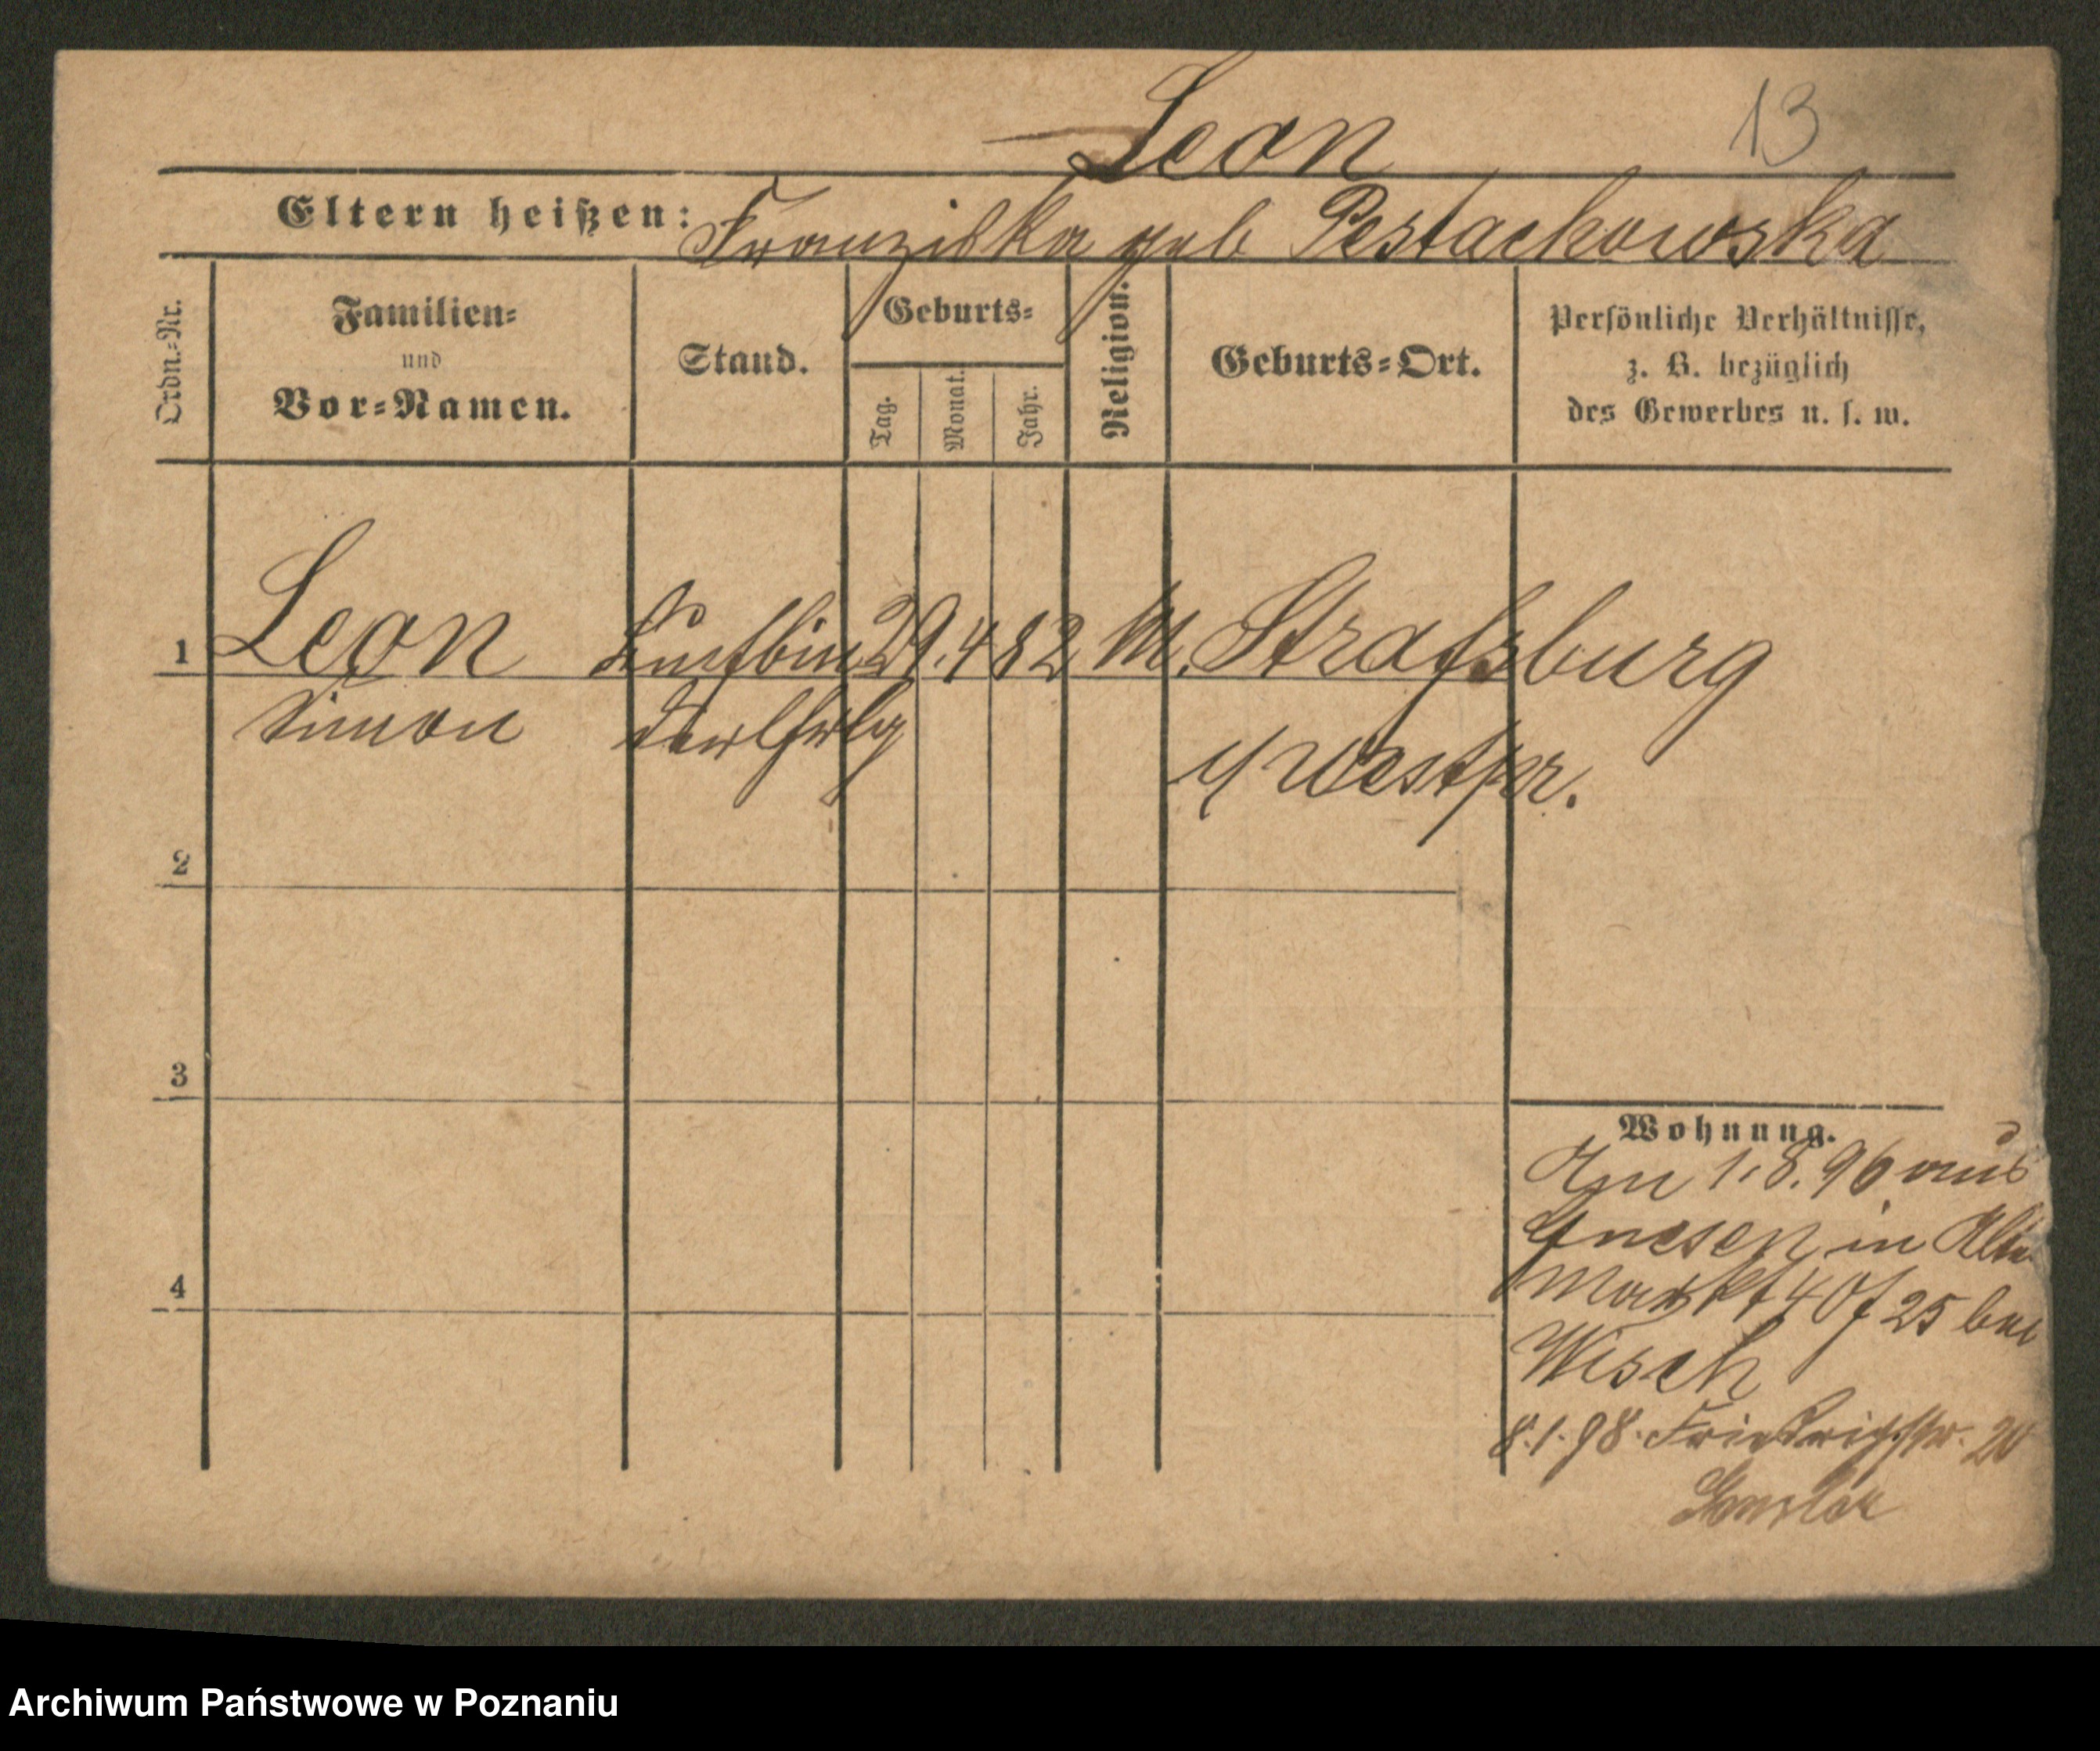 Leon
13
Eltern heißen: Franziska geb Pestachowska
Ordn.-Nr.
Familien-
und
Vor-Namen.
Stand.
Geburts-
Tag.
Monat.
Jahr.
Religion.
Geburts-Ort.
Persönliche Verhältnisse,
z. B. bezüglich
des Gewerbes u. s. w.
1 Leon 29. 4 82 M. Strafsburg
Simon
Westpr.
2
3
4
Wohnung.
1.8.96 aus
Gnesen in Alter
Markt 40 f 25 bei
Wisch
8.1.98. Friedrichstr. 20
Archiwum Państwowe w Poznaniu